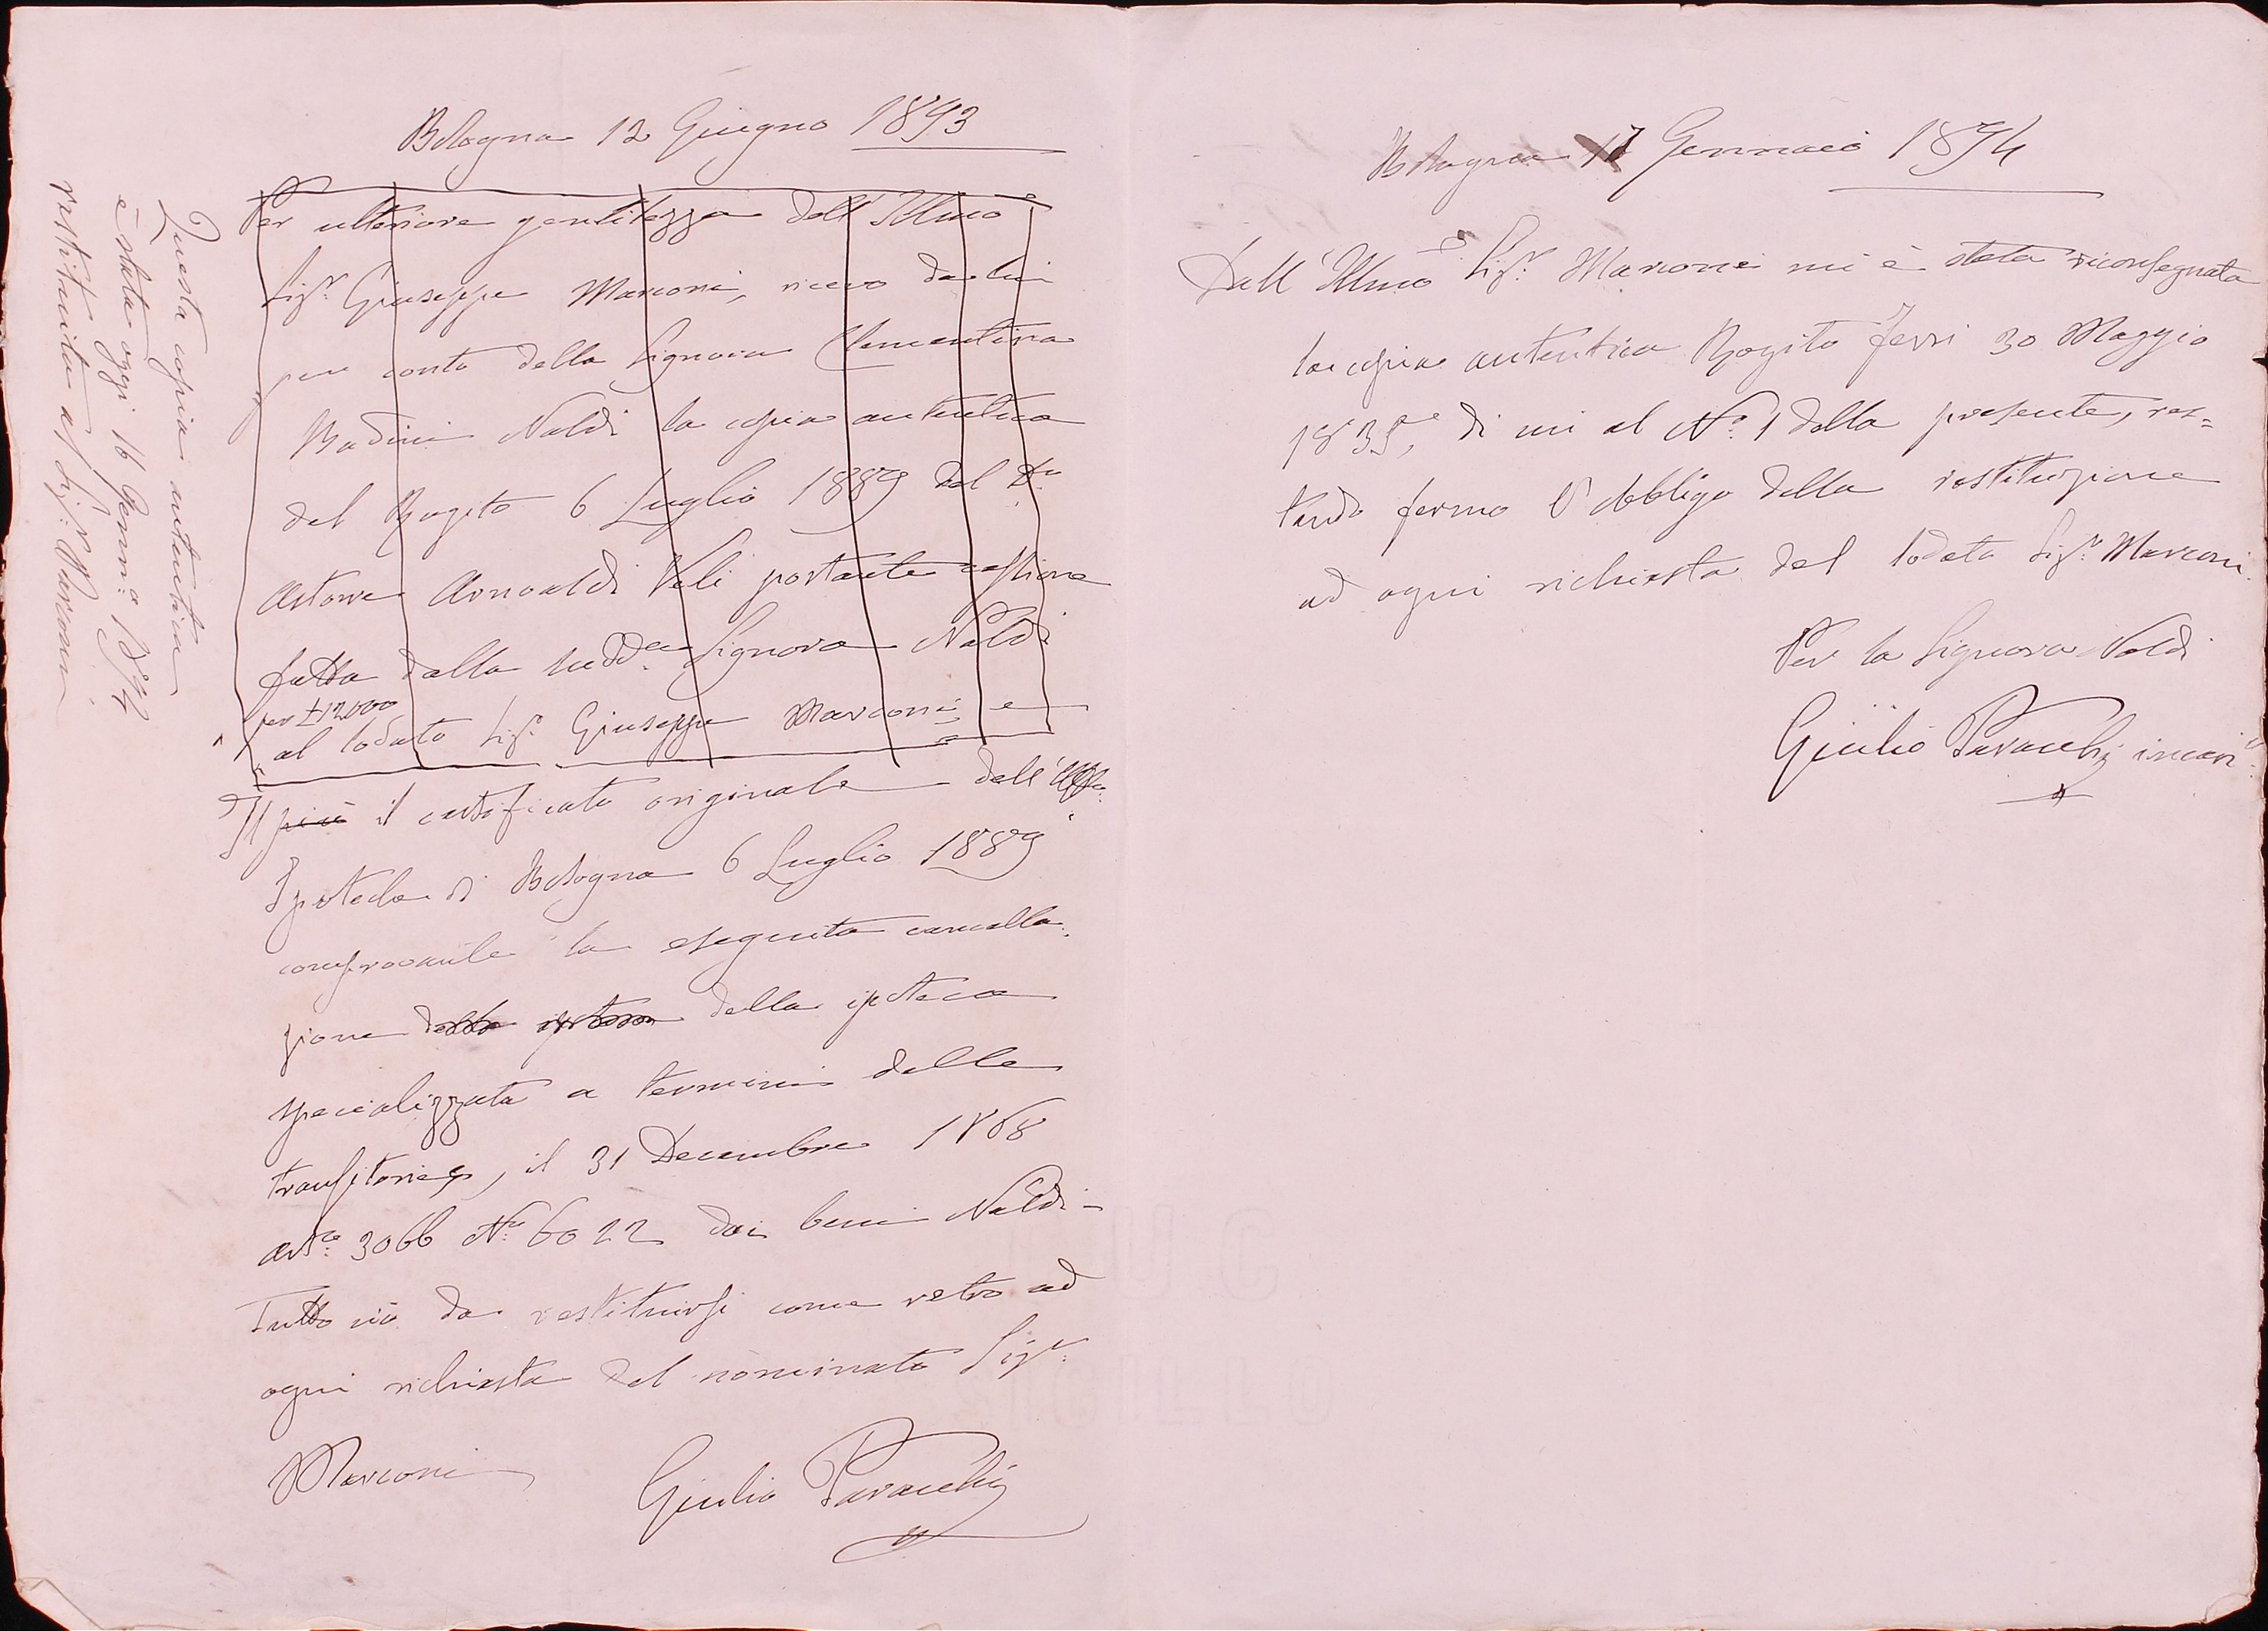 Bologna 12 Giugno 1893
Per ulteriore gentilezza dell'Illmo
Sigr. Giuseppe Marconi, ricevo da lui
per conto della Signora Clementina
Badini Naldi la copia autentica
del Rogito 6 Luglio 1889 del Dr.
Astorre Arnoaldi Veli portante cessione
fatta dalla sudda. Signora Naldi
per £ 12000
al lodato Sigr. Giuseppe Marconi e
Il più il certificato originale dell'
Ipoteche di Bologna 6 Luglio 1889
comprovante la eseguita cancella-
zione della ipoteca della ipoteca
specializzata a termini delle
transitorie, il 31 Decembre 1868
artº. 3066 Nº. 6022 dai beni Naldi -
Tutto ciò da restituirsi come retro ad
ogni richiesta del nominato Sigr.
Marconi Giulio Paracchi
Questa copia autentica
è stata oggi 16 Gennº. 1894
restituita al Sigr. Marconi
Bologna 17 Gennaio 1894
Dall'Illmo Sigr. Marconi mi è stata riconsegnata
la copia autentica Rogito Ferri 30 Maggio
1835, di cui al Nº. 1 della presente, res=
tando fermo l'obbligo della restituzione
ad ogni richiesta del lodato Sigr. Marconi.
Per la Signora Naldi
Giulio Paracchi incarº.